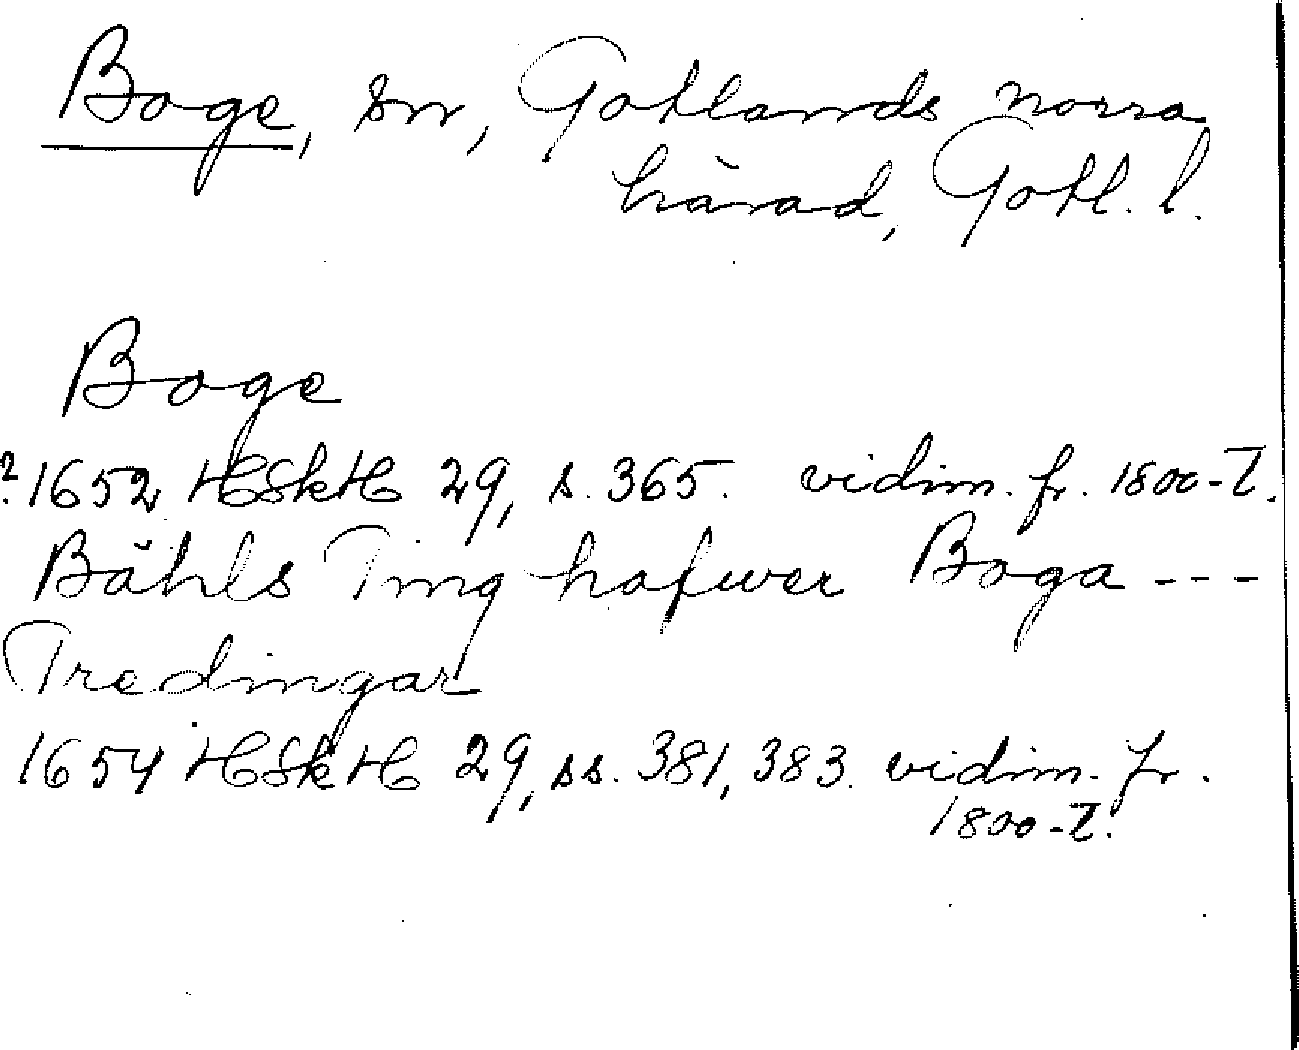 Boge, sn, Gotlands norra
härad, Gotl. l.
Boge
? 1652 HSkH 29, s. 365. vidim. fr. 1800-t.
Bähls Ting hafwer Boga ---
Tredingar
1654 HSkH 29, ss. 381, 383. vidim. fr.
1800-t.